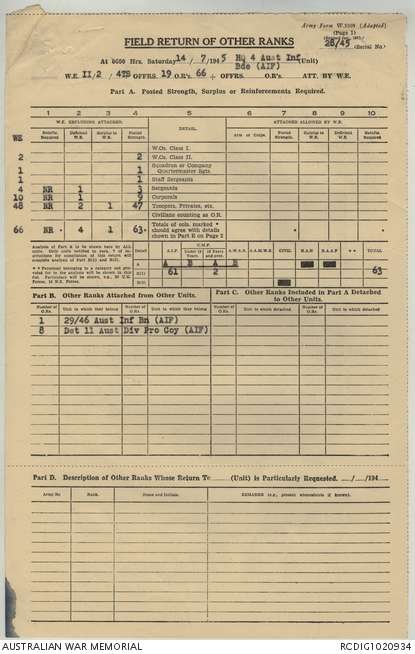 Army Form W.3009 (Adapted)
(Page 1)
28/45 (Serial No.)
FIELD RETURN OF OTHER RANKS
At 0600 Hrs. Saturday 14 / 7 /1945 HQ 4 Aust Inf (Unit)
Bde (AIF)
W.E. II/2 / 4TB OFFRS. 19 O.R's. 66 + OFFRS. O.R's. ATT. BY W.E.
Part A. Posted Strength, Surplus or Reinforcements Required.
1 2 3 4 5 6 7 8 9 10
W.E. EXCLUDING ATTACHED. DETAIL ATTACHED ALLOWED BY W.E.
WE Reinfts. Required Deficient W.E. Surplus to W.E. Posted Strength. Arm or Corps. Posted Strength. Surplus to W.E. Deficient W.E. Reinfts. Required
W.Os. Class I.
2 2 W.Os. Class II.
1 1 Squadron or Company Quartermaster Sgts
1 1 Staff Sergeants
4 NR 1 3 Sergeants
10 NR 1 9 Corporals
48 NR 2 1 47 Troopers, Privates, etc.
Civilians counting as O.R.
66 NR 4 1 63 Totals of cols. marked * should agree with details shown in Part B on Page 2
Analysis of Part A to be shown here by ALL units. Detail A.I.F. C.M.F. A.W.A.S. A.A.M.W.S. CIVIL TOTAL
A B A B
61 2 63
Part B. Other Ranks Attached from Other Units.
Part C. Other Ranks Included in Part A Detached to Other Units.
Number of O.Rs. Unit to which they belong Number of O.Rs. Unit to which they belong Number of O.Rs. Unit to which detached Number of O.Rs. Unit to which detached
1 29/46 Aust Inf Bn (AIF)
8 Det 11 Aust Div Pro Coy (AIF)
Part D. Description of Other Ranks Whose Return To (Unit) is Particularly Requested. / /194
Army No. Rank. Name and Initials. REMARKS (e.g., present whereabouts if known).
AUSTRALIAN WAR MEMORIAL
RCDIG1020934